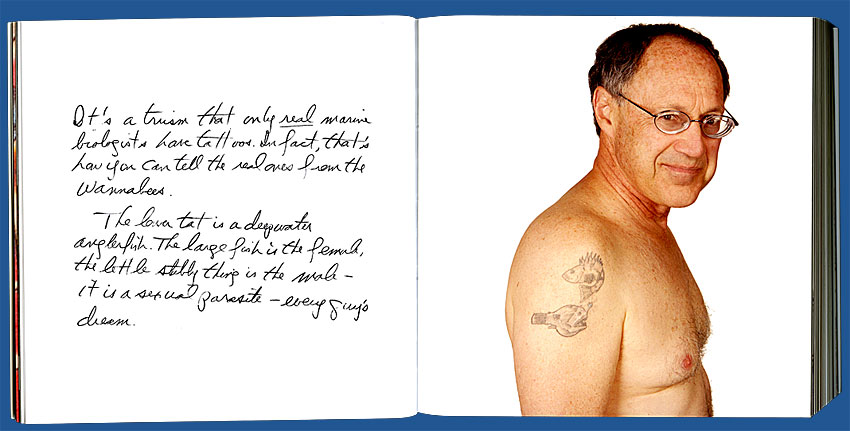 It's a truism that only real marine
biologists have tattoos. In fact, that's
how you can tell the real ones from the
wannabees.
The lower tat is a deepwater
anglerfish. The large fish is the female,
the little stubby thing is the male –
it is a sexual parasite – every guy's
dream.